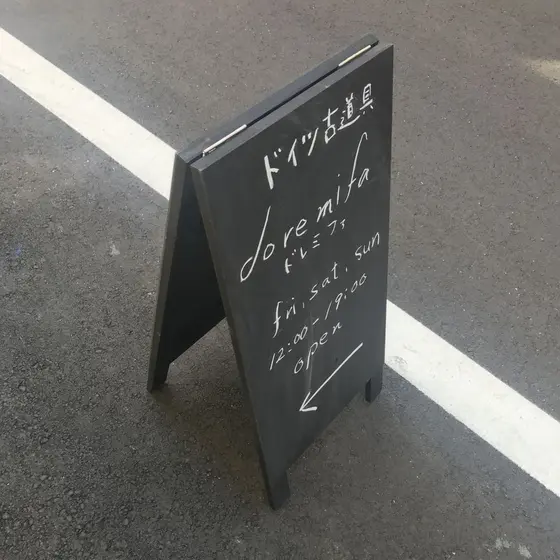 ドイツ古道具
doremifa
ドレミファ
fri, sat, sun
12:00-19:00
open